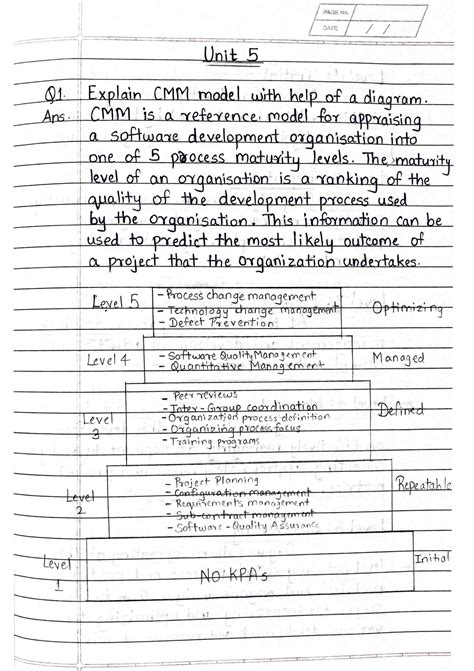 PAGE No.
DATE / /
Unit 5
Q1. Explain CMM model with help of a diagram.
Ans. CMM is a reference model for appraising
a software development organisation into
one of 5 process maturity levels. The maturity
level of an organisation is a ranking of the
quality of the development process used
by the organisation. This information can be
used to predict the most likely outcome of
a project that the organization undertakes.
Level 5 - Process change management
- Technology change management Optimizing
- Defect Prevention
Level 4 - Software Quality Management Managed
- Quantitative Management
- Peer reviews
- Inter-Group coordination Defined
Level - Organization process definition
3 - Organizing process focus
- Training programs
- Project Planning Repeatable
Level - Configuration management
2 - Requirements management
- Sub-contract management
- Software-Quality Assurance
Level Initial
1 NO KPA's